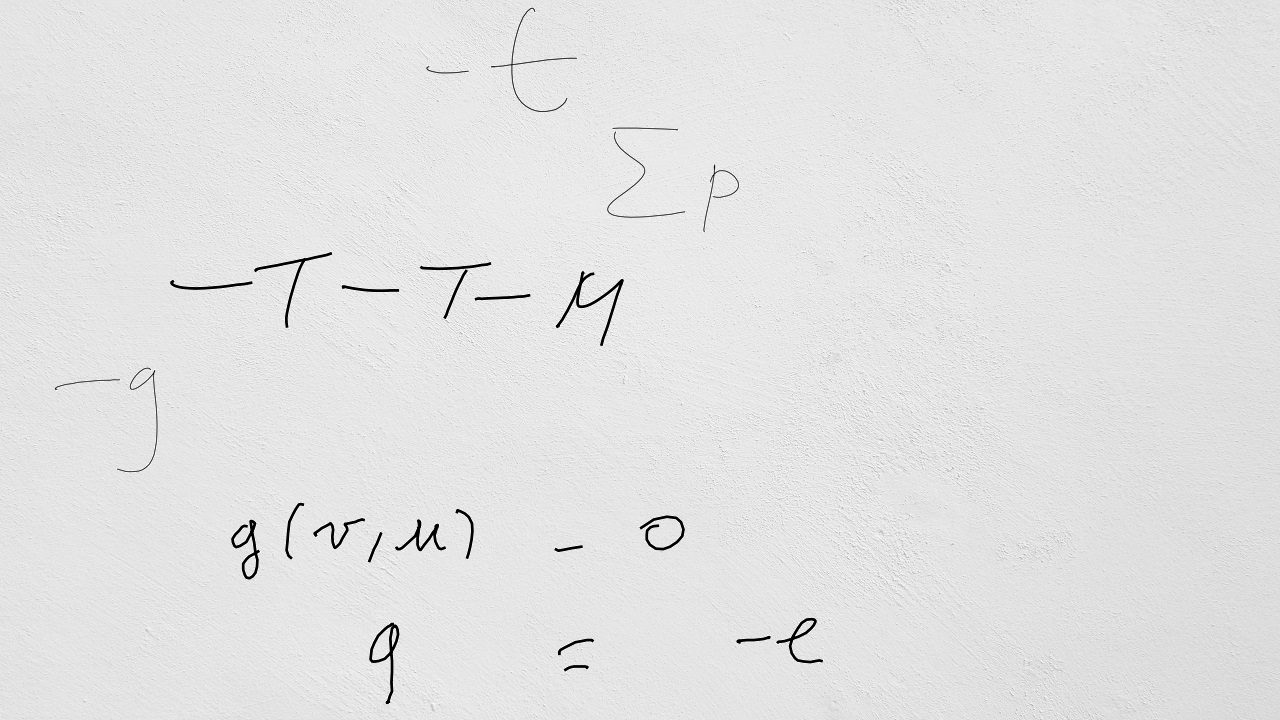 -t
Σp
-T-T-μ
-g
g(v,u) - 0
q = -e